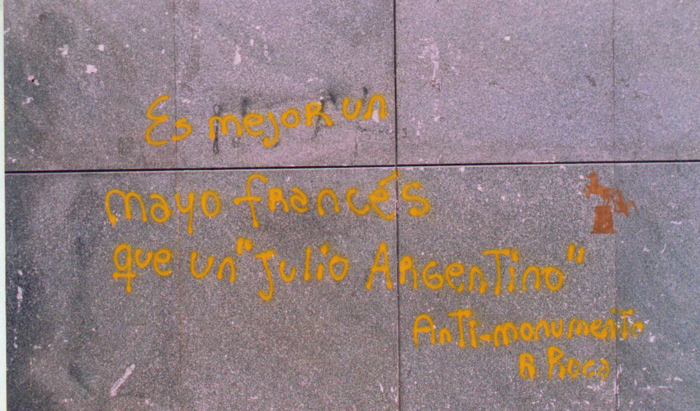 Es mejor un
mayo francés
que un "Julio Argentino"
Anti-monumento
a Roca